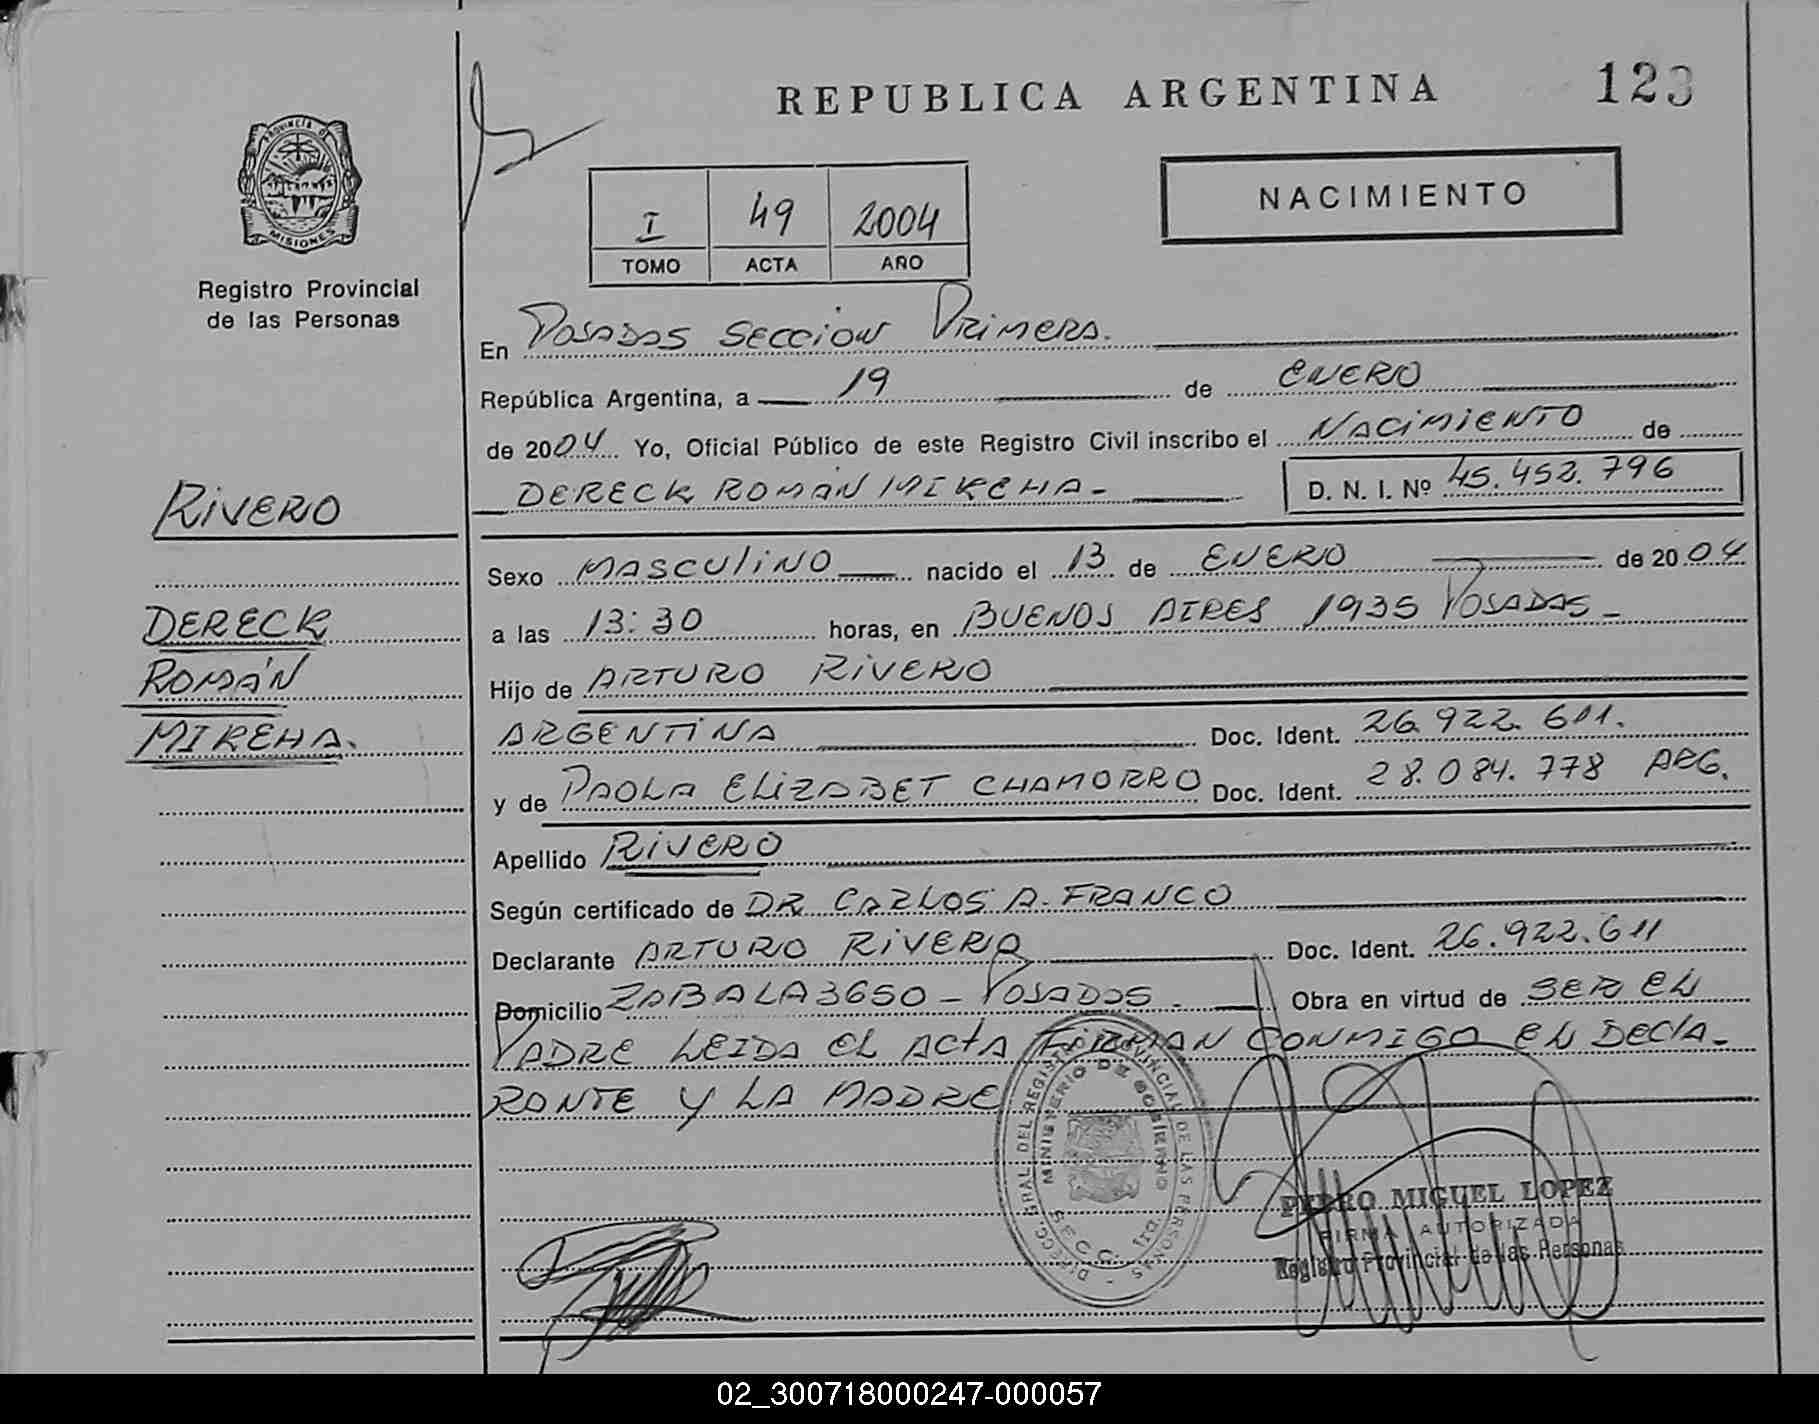 REPUBLICA ARGENTINA
123
NACIMIENTO
I 49 2004
TOMO ACTA AÑO
PROVINCIA DE
MISIONES
Registro Provincial
de las Personas
En Posadas Seccion Primera.
República Argentina, a 19 de ENERO
de 2004 Yo, Oficial Público de este Registro Civil inscribo el NACIMIENTO de
DERECK ROMÁN MIKEHA- D. N. I. Nº 45.452.796
RIVERO
DERECK
ROMÁN
MIKEHA.
Sexo MASCULINO nacido el 13 de ENERO de 2004
a las 13:30 horas, en BUENOS AIRES 1935 POSADAS-
Hijo de ARTURO RIVERO
ARGENTINA Doc. Ident. 26.922.611.
y de PAOLA ELIZABET CHAMORRO Doc. Ident. 28.084.778 ARG.
Apellido RIVERO
Según certificado de DR CARLOS A. FRANCO
Declarante ARTURO RIVERO Doc. Ident. 26.922.611
Domicilio ZABALA 3650 - POSADAS. Obra en virtud de SER EL
PADRE LEIDA EL ACTA FIRMAN CONMIGO EL DECLA-
RANTE Y LA MADRE
DIRECC. GRAL DEL REGISTRO PROVINCIAL DE LAS PERSONAS
MINISTERIO DE GOBIERNO
PEDRO MIGUEL LOPEZ
FIRMA AUTORIZADA
Registro Provincial de las Personas
02_300718000247-000057